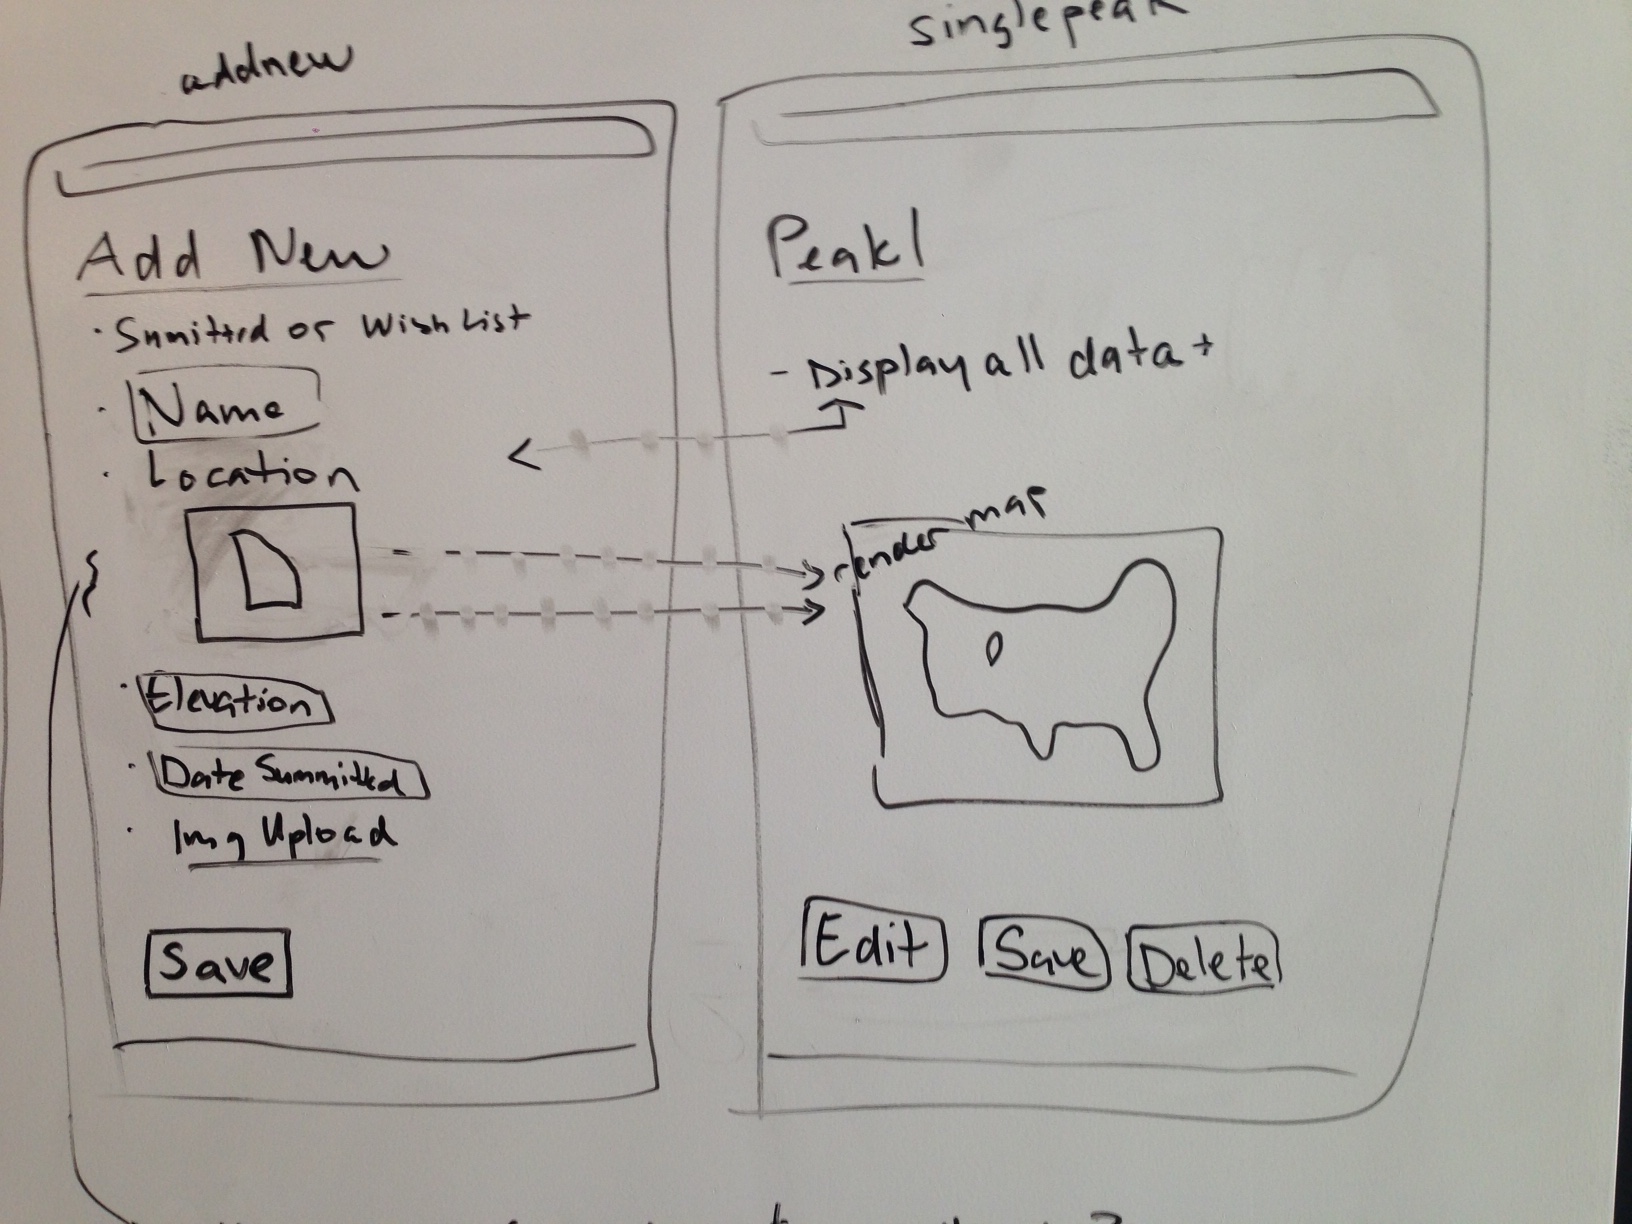 addnew
Add New
· Summitted or Wish List
· Name
· Location
· Elevation
· Date Summitted
· Img Upload
Save
singlepeak
Peak1
- Display all data +
render map
Edit Save Delete